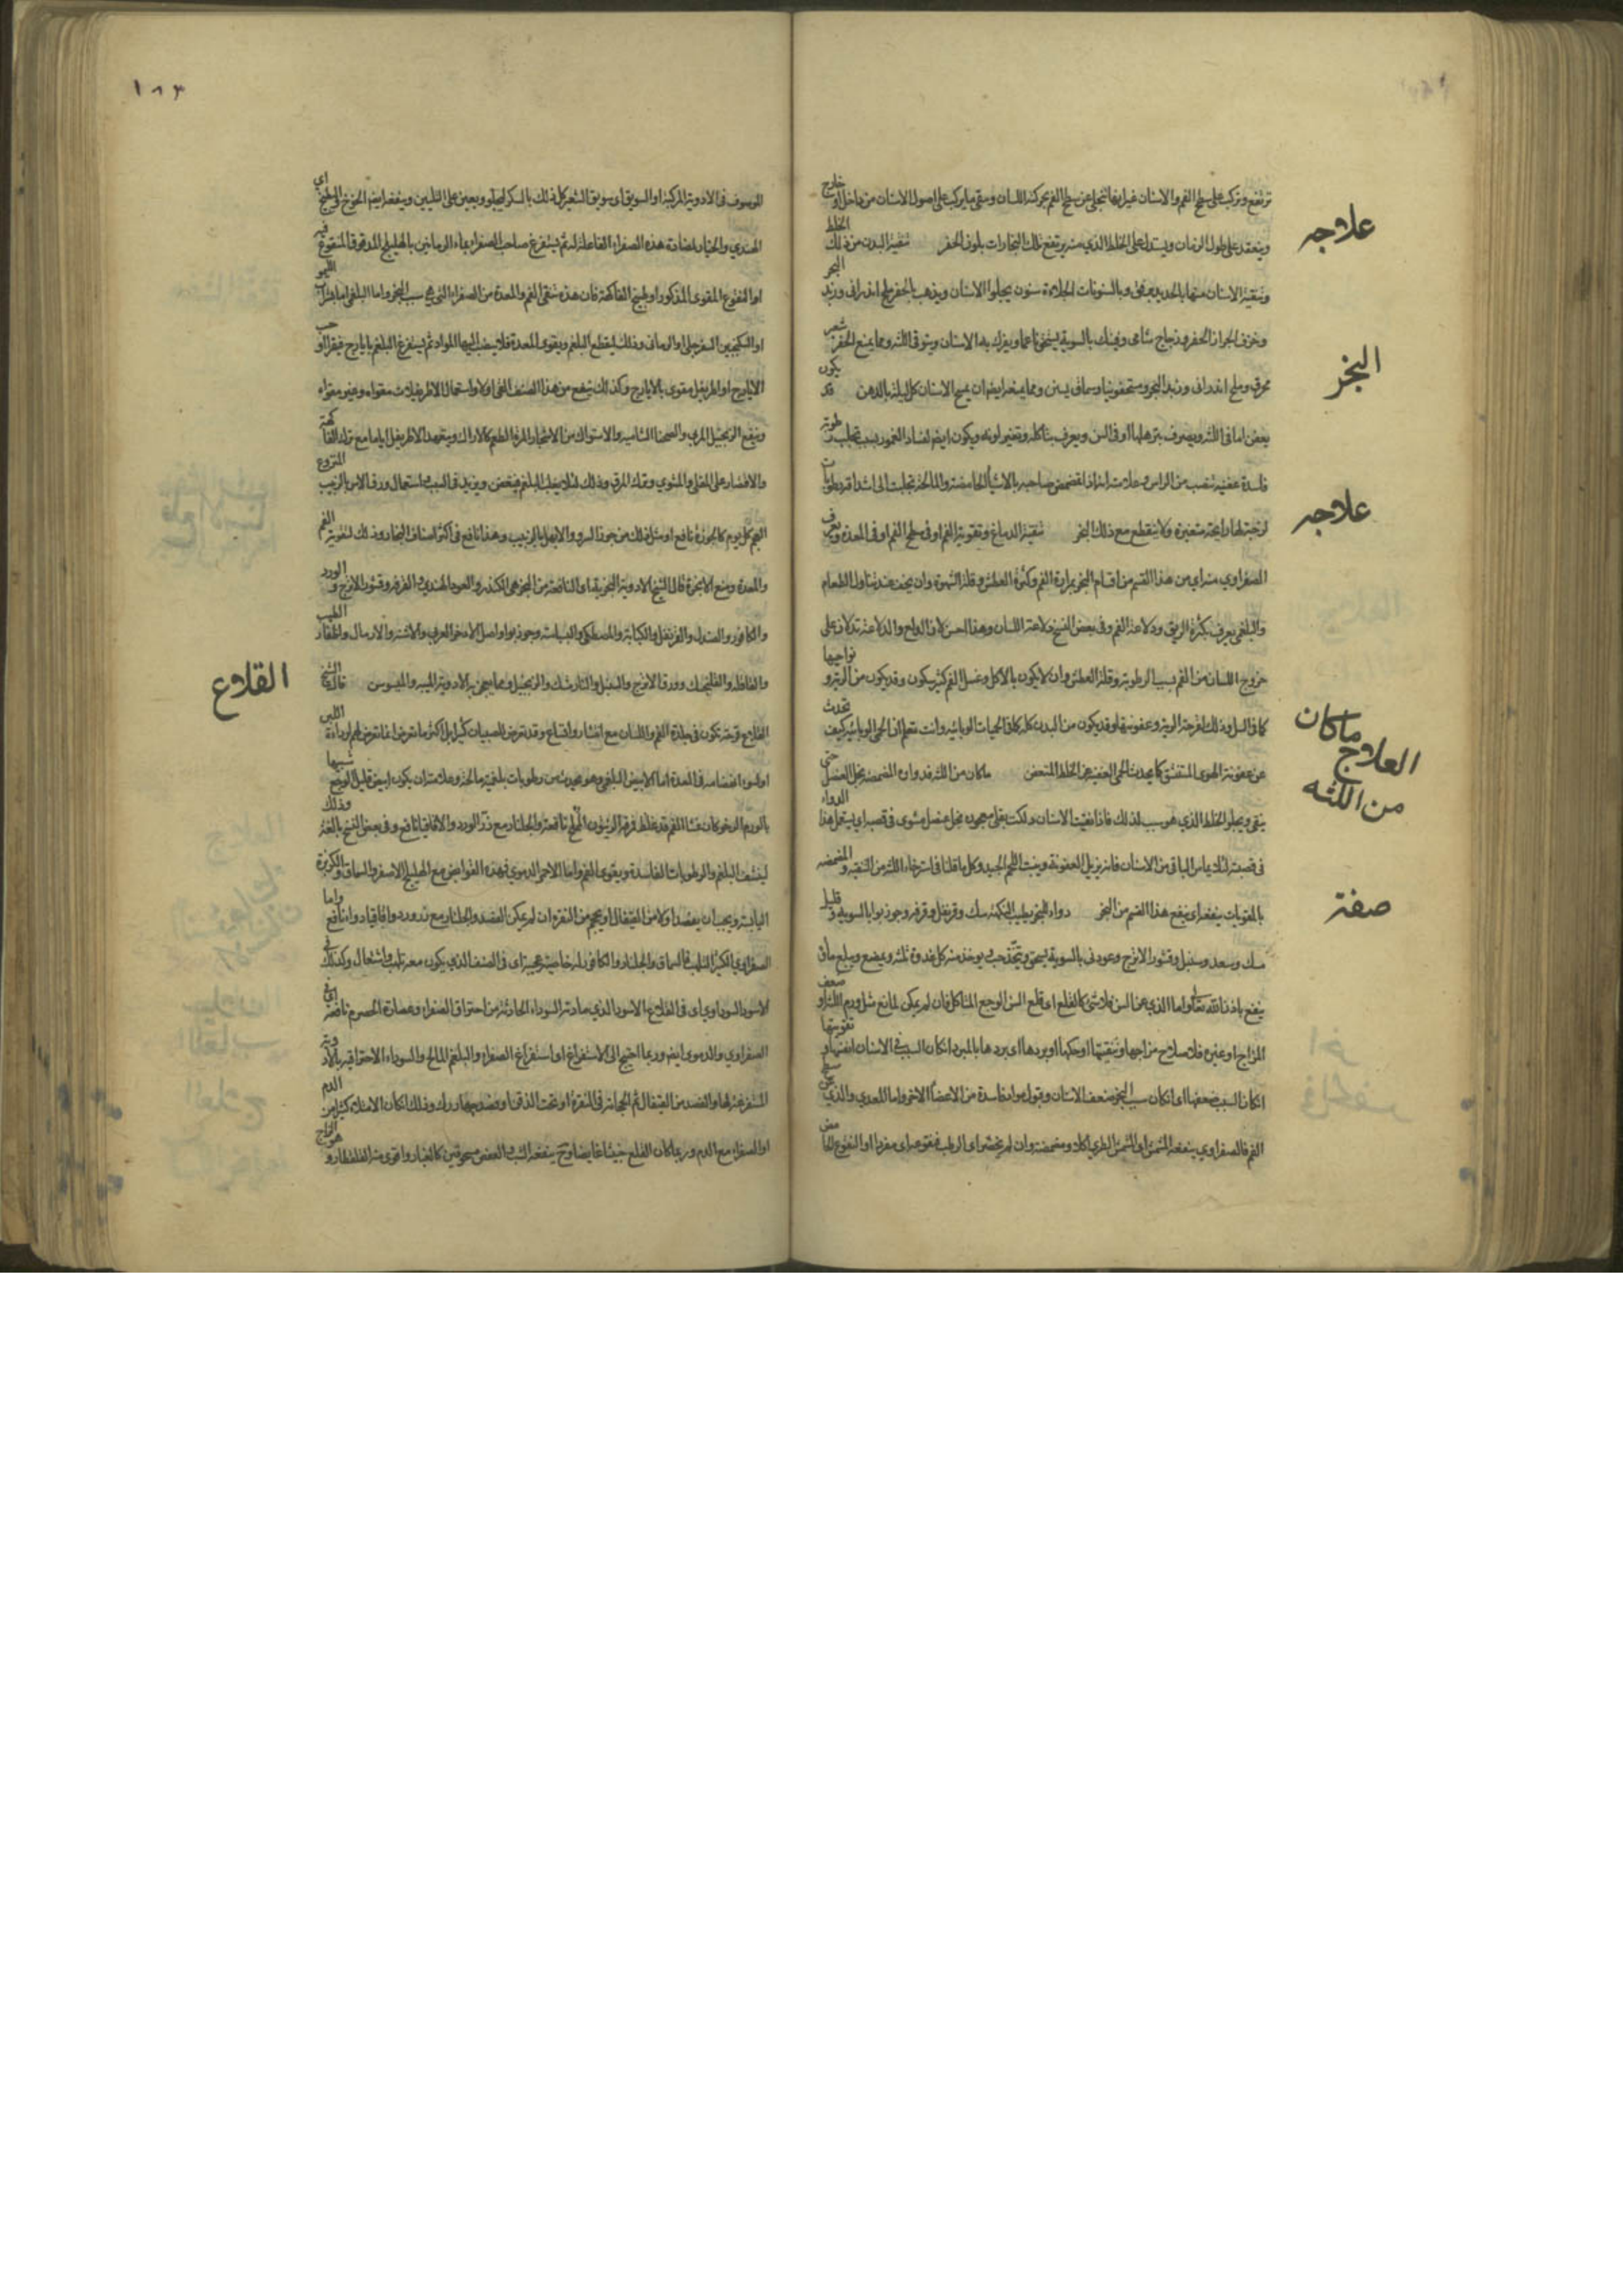 علاجه
ترتفع وتركب على سطح الفم والاسنان غير انها تنجلي عن سطح الفم بحركة اللسان وسقى ما يركب على اصول الاسنان من داخل او خارج
وينعقد على طول الزمان ويستدل على الخلط الذي منه يرتفع تلك البخارات بلون الحفر تنقية البدن من ذلك الخلط
وتنقية الاسنان منها بالحديد وبالسنونات الجلاءة سنون يجلوا الاسنان ويذهب بالحفر ملح اندراني وزبد البحر
وخزف الحفر وزجاج شامي بالسوية يسحق ناعما ويفرك به الاسنان ويتوقى اللثة ومما يمنع الحفر شعير
البخر
محرق وملح اندراني وزبد البحر وسماق ومما ينفع ايضا ان يمسح الاسنان كل ليلة بالدهن قد يكون
بعض اما في اللثة ويعرف بترهلها او في السن ويعرف بتاكله وتغير لونه ويكون ايضا لفساد العمور بسبب تحلب رطوبة
علاجه
فاسدة عفنية تنصب من الراس وعلامته انه اذا تمضمض صاحبه بالاشياء الحامضة والمالحة تجلبت الى اشداقه رطوبات
لزجة لها رايحة متغيرة ولا ينقطع مع ذلك البخر تنقية الدماغ وتقوية الفم او في سطح الفم او في المعدة ويعرف
الصفراوي منه اي من هذا القسم من اقسام البخر بمرارة الفم وكثرة العطش وقلة الشهوة وان يخف عند تناول الطعام
والبلغمي يعرف بكثرة الريق ودلاعة الفم وفي بعض النسخ ودلاعة اللسان وهذا احسن
خروج اللسان من الفم بسبب الرطوبة وقلة العطش وان لا يكون بالاكل وغسل الفم كثير سكون وقد يكون من الرية ونواحيها
ماكان
العلاج
من اللثه
كما في السل وذلك لقرحة الرية وعفونتها وقد يكون من البدن كله كما في الحميات الوبائية وانت تعلم ان الحمى الوبائية كيف تحدث
عن عفونة الهوى المستنشق كما يحدث الحمى العفنية عن الخلط المتعفن ماكان من اللثة فدوان المضمضة بخل العنصل حتى
ينقى ويجلو الخلط الذي هو سبب لذلك فاذا نقيت الاسنان بقلي معجون بخل عنصل مشوى في قصبة او يستعمل هذا الدواء
في قصبة لئلا يماس الباقي من الاسنان فانه يزيل العفونة وينبت اللحم الجيد وكل ما قلنا في استرخاء اللثة من التنقية والمضمضة
صفة
بالمقويات ينفعه اي ينفع هذا القسم من البخر دواء للبخر يطيب النكهة سك وقرنفل وقرفة وجوز بوا بالسوية وقليل
مسك وسعد وسنبل وقشور الاترج وعود ني بالسوية يسحق ويتخذ حب يوخذ منه كل غدوة ثلثة ويمضغ ويبلع ماؤه
ينفع باذن الله تعالى واما الذي عن السن فلا شئ كالقلع اي قلع السن الوجع المتاكل فان لم يمكن لمانع مثل ورم اللثة او ضعف
المزاج او غيره فلا صلاح مزاجها وتنقيتها او حكها او بردها اي بردها بالمبرد ان كان السبب في الاسنان انفسها وتقويتها
ان كان السبب ضعفها اي ان كان سبب البخر ضعف الاسنان وقبول مواد فاسدة من الاعضاء الاخر واما المعدي والذي عن سطح
الفم فالصفراوي ينفعه المشمش اي المشمش الطري اكلا ومضمضة وان لم يحضر اي الرطب فنقوعه اي مفردا او النقوع الحامض
١٨٣
الموصوف في الادوية المركبة او السويق اي سويق الشعير كل ذلك بالسكر ليجلو ويعين على التليين وينفعه ايضا الخوخ والبطيخ اي
الهندي والخيار لمضادة هذه الصفراء الفاعلة له ثم يستفرغ صاحب الصفراء بماء الرمانين بالهليلج المدقوق المنقوع فيه
او النقوع المقوى المذكور او بطبيخ الفاكهة فان هذه تنقي الفم والمعدة من الصفراء التي هي سبب البخر واما البلغمي اما بشراب الليمو
او السكنجبين السفرجلي او الرماني وذلك ليقطع البلغم ويقوى المعدة فلا ينصب اليها المواد ثم يستفرغ البلغم بايارج فيقرا او حب
الايارج او اطريفل مقوى بالايارج وكذلك ينفع من هذا الصنف القى اولا واستعمال الاطريفلات مقواه وغير مقواه
وينفع الزنجبيل المربى والصحنا الشامية والاستواك من الاشجار المرة الطعم كالاراك ويتعهد الاطريفل اياما مع ترك الفاكهة
والاقتصار على المقلي والمشوي وترك المرق وذلك لئلا يغلب البلغم فيتعفن ويزيد في السبب واستعمال ورق الاس بالزبيب المنزوع
العجم كل يوم كالجوزة نافع او مثل ذلك من جوز السرو والابهل بالزبيب وهذا نافع في اكثر اصناف البخار وذلك لتقويته الفم
والمعدة ومنع الابخرة قال الشيخ الادوية البخرية اي النافعة من البخر هي الكندر والعود الهندي والقرفة وقشور الاترج والورد
والكافور والصندل والقرنفل والكبابة والمصطكى والبسباسة وجوز بوا واصل الاذخر العربي والاشنة والارمال واظفار الطيب
القلاع
والقاقلة والفلنجمك وورق الاترج والسنبل والنارمشك والزنجبيل ومما يعجن به الادوية الميبه والميسوس قال الشيخ
القلاع قرحة تكون في جلدة الفم واللسان مع انتشار واتساع وقد تعرض للصبيان كثيرا بل اكثر ما تعرض انما تعرض لهم لرداءة اللبن
او لسوء انهضامه في المعدة اما الابيض البلغمي وهو يحدث من رطوبات بلغمية مالحة وعلامته ان يكون ابيض قليل الوجع شبيها
بالورم الرخو كان غشاء الفم قد غلظ فزهر الزيتون المملح نافعة والجلنار مع ذر الورد والاقاقيا نافع وفي بعض النسخ بالغة وذلك
لينشف البلغم والرطوبات الفاسدة ويقوى الفم واما الاحمر الدموي فهذه القوابض مع الهليلج الاصفر والسماق والكزبرة
اليابسة ويجب ان يفصد اولا من القيفال او يحجم من النقرة ان لم يمكن الفصد والجلنار مع ذرورد واقاقيا دواء نافع واما
الصفراوي الكثير التلهب فالسماق والجلنار والكافور له خاصية عجيبة اي في الصنف الذي يكون معه تلهب واشتعال وكذلك في
الاسود السوداوي اي في القلاع الاسود الذي مادته السوداء الحادثة من احتراق الصفراء وعصارة الحصرم نافعة في
الصفراوي والدموي ايضا وربما احتيج الى الاستفراغ او استفراغ الصفراء والبلغم المالح والسوداء الاحتراقية بالادوية
المستفرغة لها والفصد من القيفال ثم الحجامة في النقرة او تحت الذقن او فصد جهارك وذلك ان كان الامتلاء كثيرا من الدم
او الصفراء مع الدم وربما كان القلاع خبيثا غايضا وح ينفعه الشب والعفص مسحوقين كالغبار واقوى منه القلقطار وهو الزاج